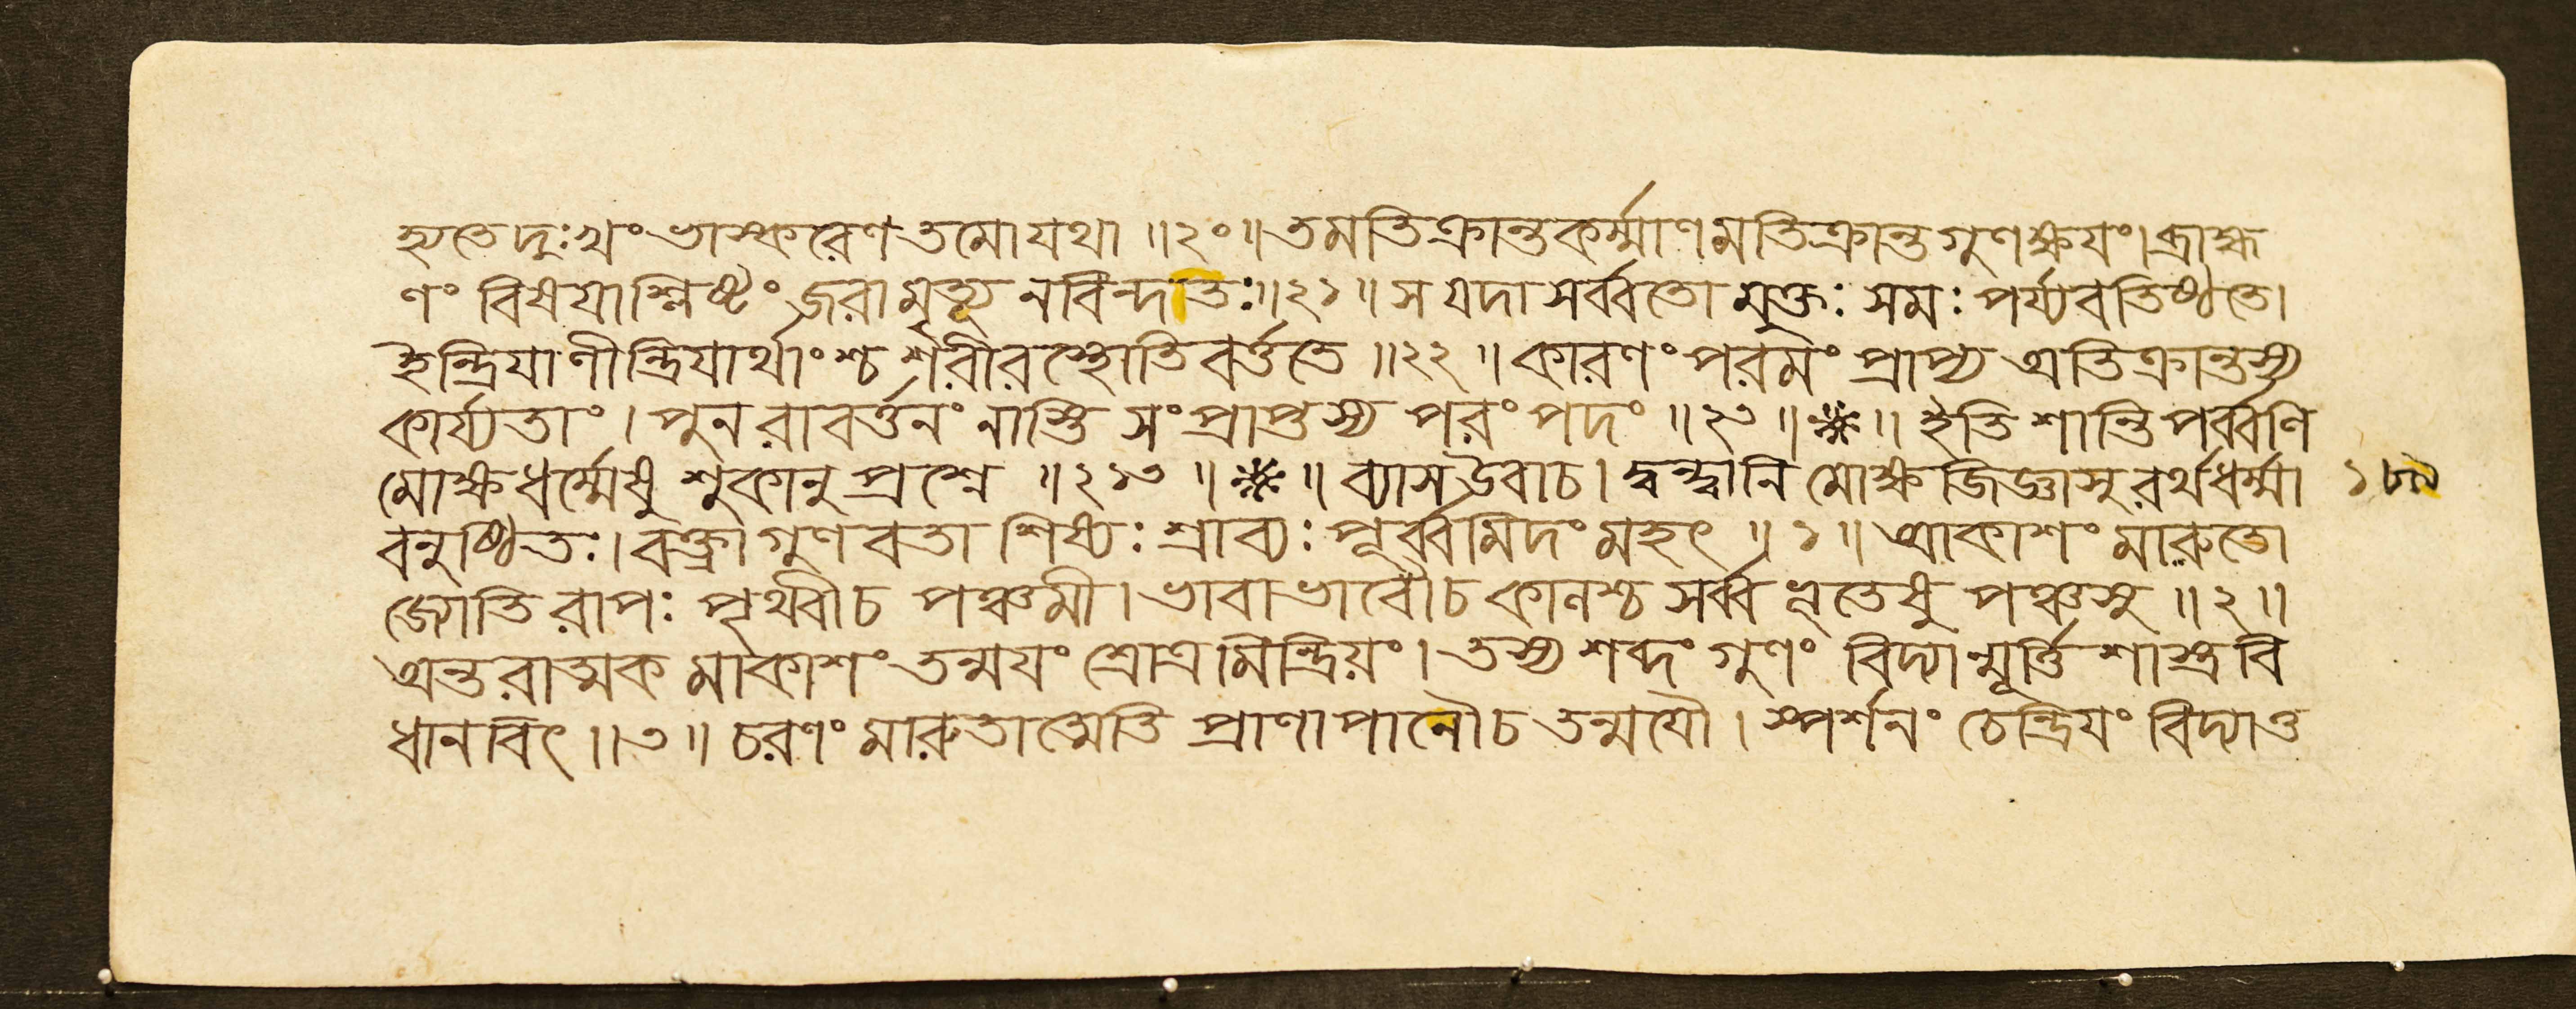 হ্যতেদুঃখংভাস্করেণতমোযথা ॥২০॥ তমতিক্রান্তকর্ম্মাণমতিক্রান্তগুণক্ষযং।ব্রাহ্ম
ণং বিষযাশ্লিষ্টং জরামৃত্যূ নবিন্দতিঃ॥২১॥ স যদা সর্ব্বতো মুক্তঃ সমঃ পর্য্যবতিষ্ঠতে।
ইন্দ্রিযাণীন্দ্রিযার্থাংশ্চ শরীরস্থোতিবর্ত্ততে ॥২২॥ কারণং পরমং প্রাপ্য অতিক্রান্তস্য
কার্য্যতাং। পুনরাবর্ত্তনং নাস্তি সংপ্রাপ্তস্য পরং পদং ॥২৩॥❋॥ ইতি শান্তিপর্ব্বণি
মোক্ষধর্ম্মেষু শুকানুপ্রশ্নে ॥২১৩॥❋॥ ব্যাসউবাচ। দ্বন্দ্বানি মোক্ষজিজ্ঞাসুরর্থধর্ম্মা
বনুষ্ঠিতঃ। বক্ত্রাগুণবতা শিষ্যঃ শ্রাব্যঃ পূর্ব্বমিদংমহৎ ॥১॥ আকাশং মারুতো
জোতিরাপঃ পৃথবীচ পঞ্চমী। ভাবাভাবৌচ কালশ্চ সর্ব্বভূতেষু পঞ্চসু ॥২॥
অন্তরাত্মকমাকাশং তন্ময়ং শ্রোত্রমিন্দ্রিয়ং। তস্য শব্দং গুণং বিদ্যান্মূর্ত্তিশাস্ত্রবি
ধানবিৎ ॥৩॥ চরণং মারুতাত্মেতি প্রাণাপানৌচ তন্মযৌ। স্পর্শনং চেন্দ্রিযং বিদ্যাত্ত